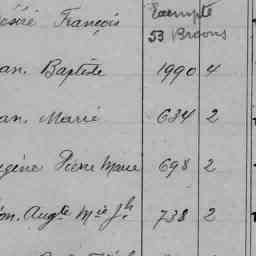 ésiré François Exempté
53 Broons
an, Baptiste 1990 4
an, Marie 634 2
gène Pierre Marie 698 2
on, Augte Mie Jh 738 2